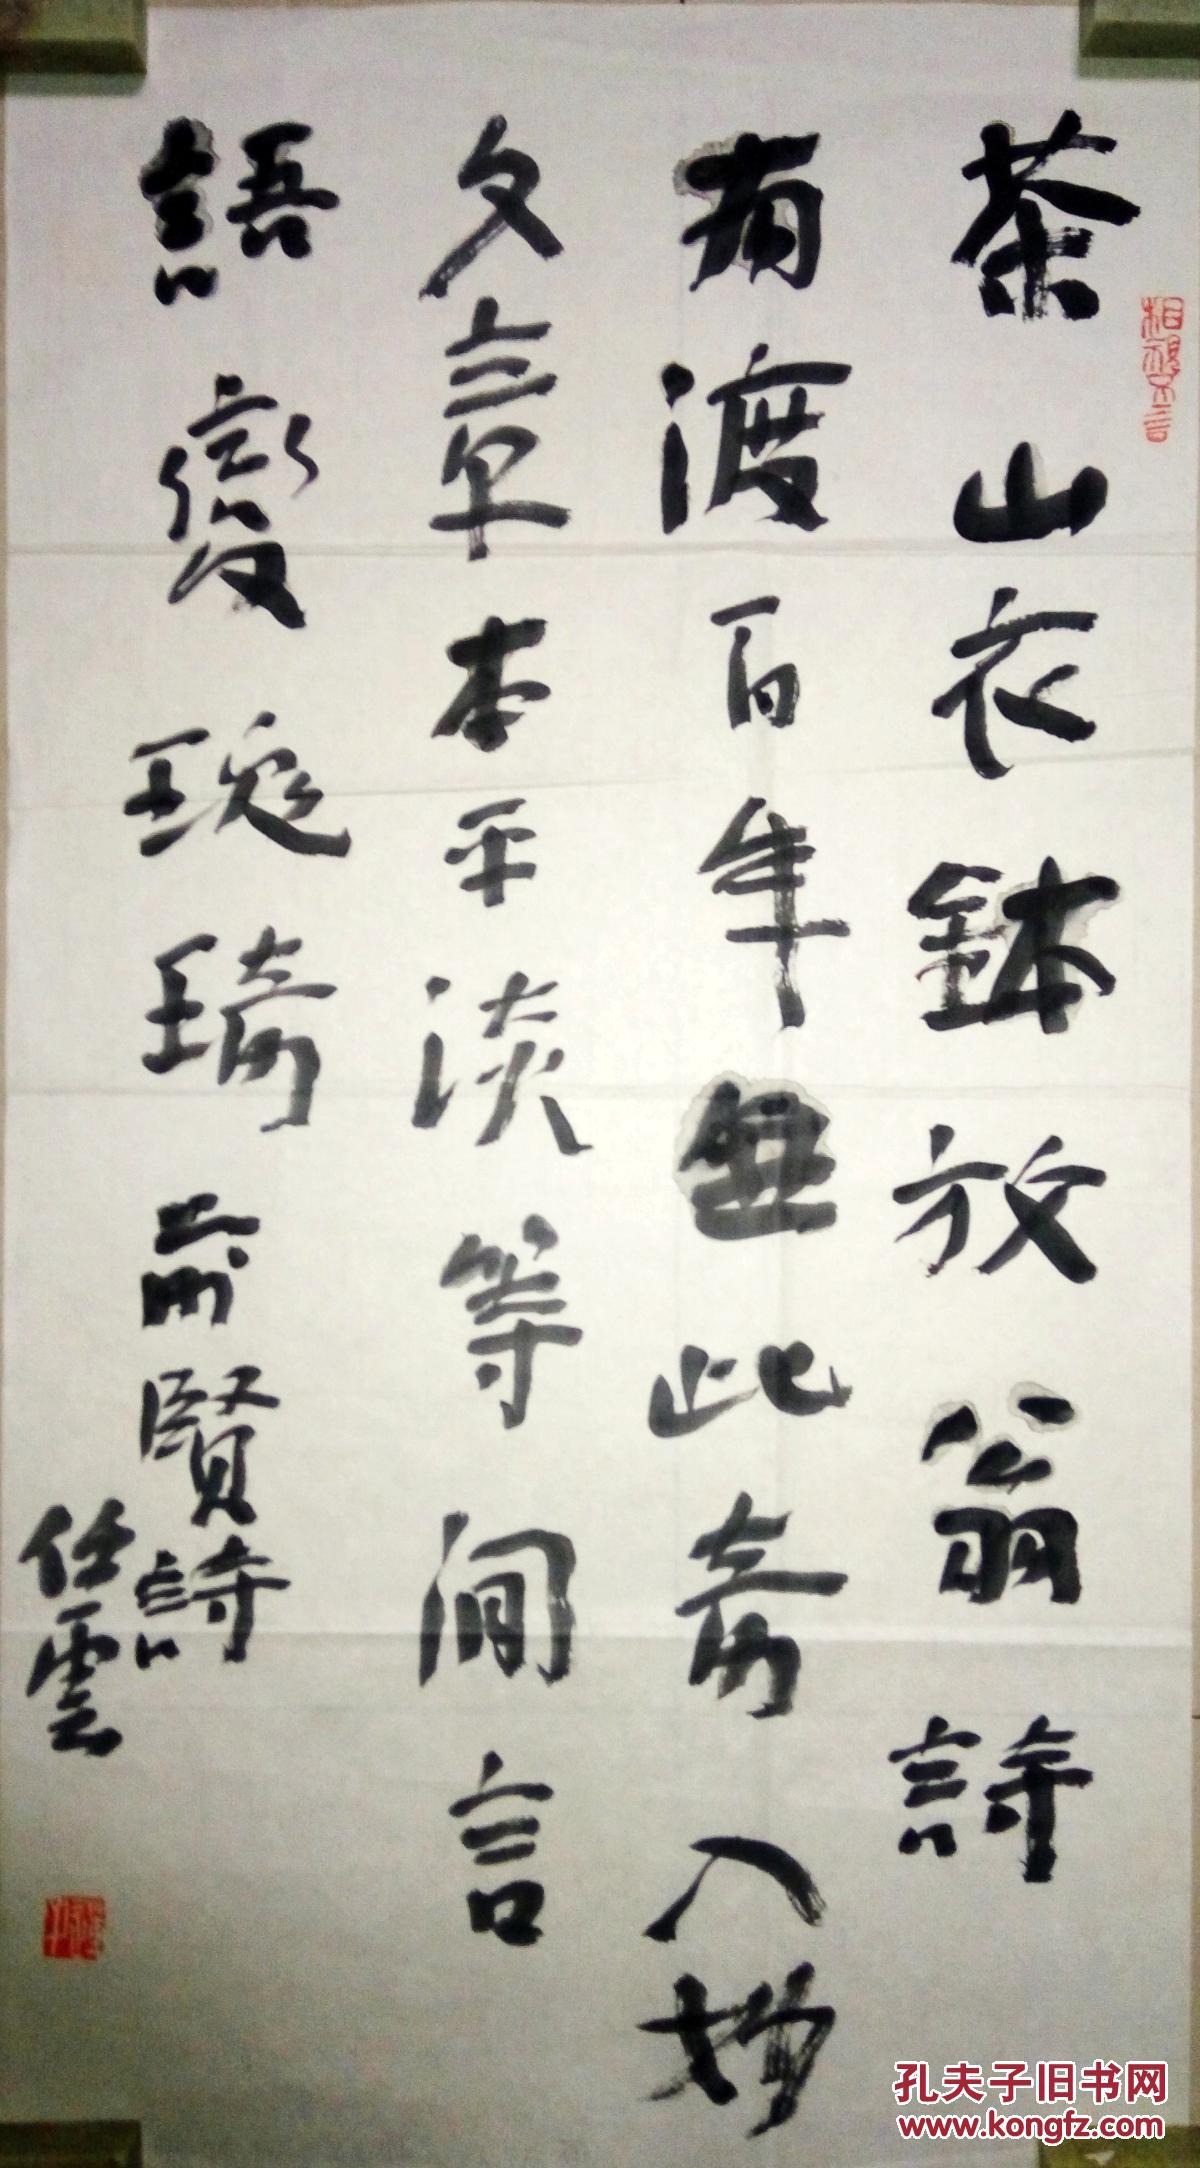 茶山衣鉢放翁詩
南渡百年無此奇入妙
文章本平淡等間言
語變瑰琦前賢詩
任雲
孔夫子旧书网
www.kongfz.com